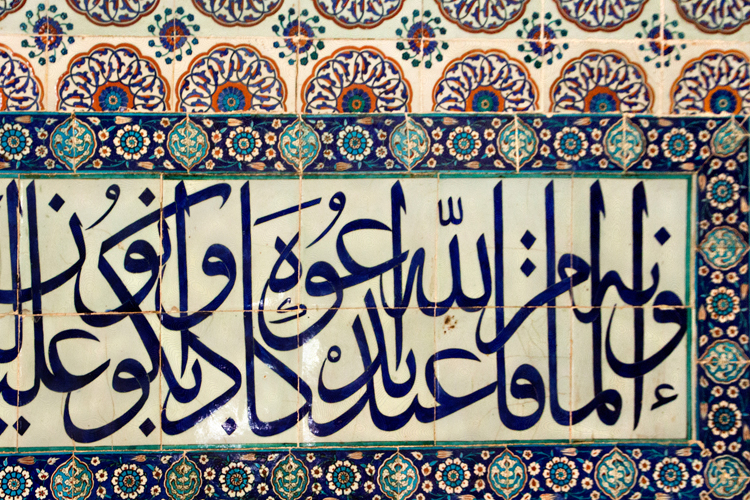 وإنه لما قام عبد الله يدعوه كادوا يكونون